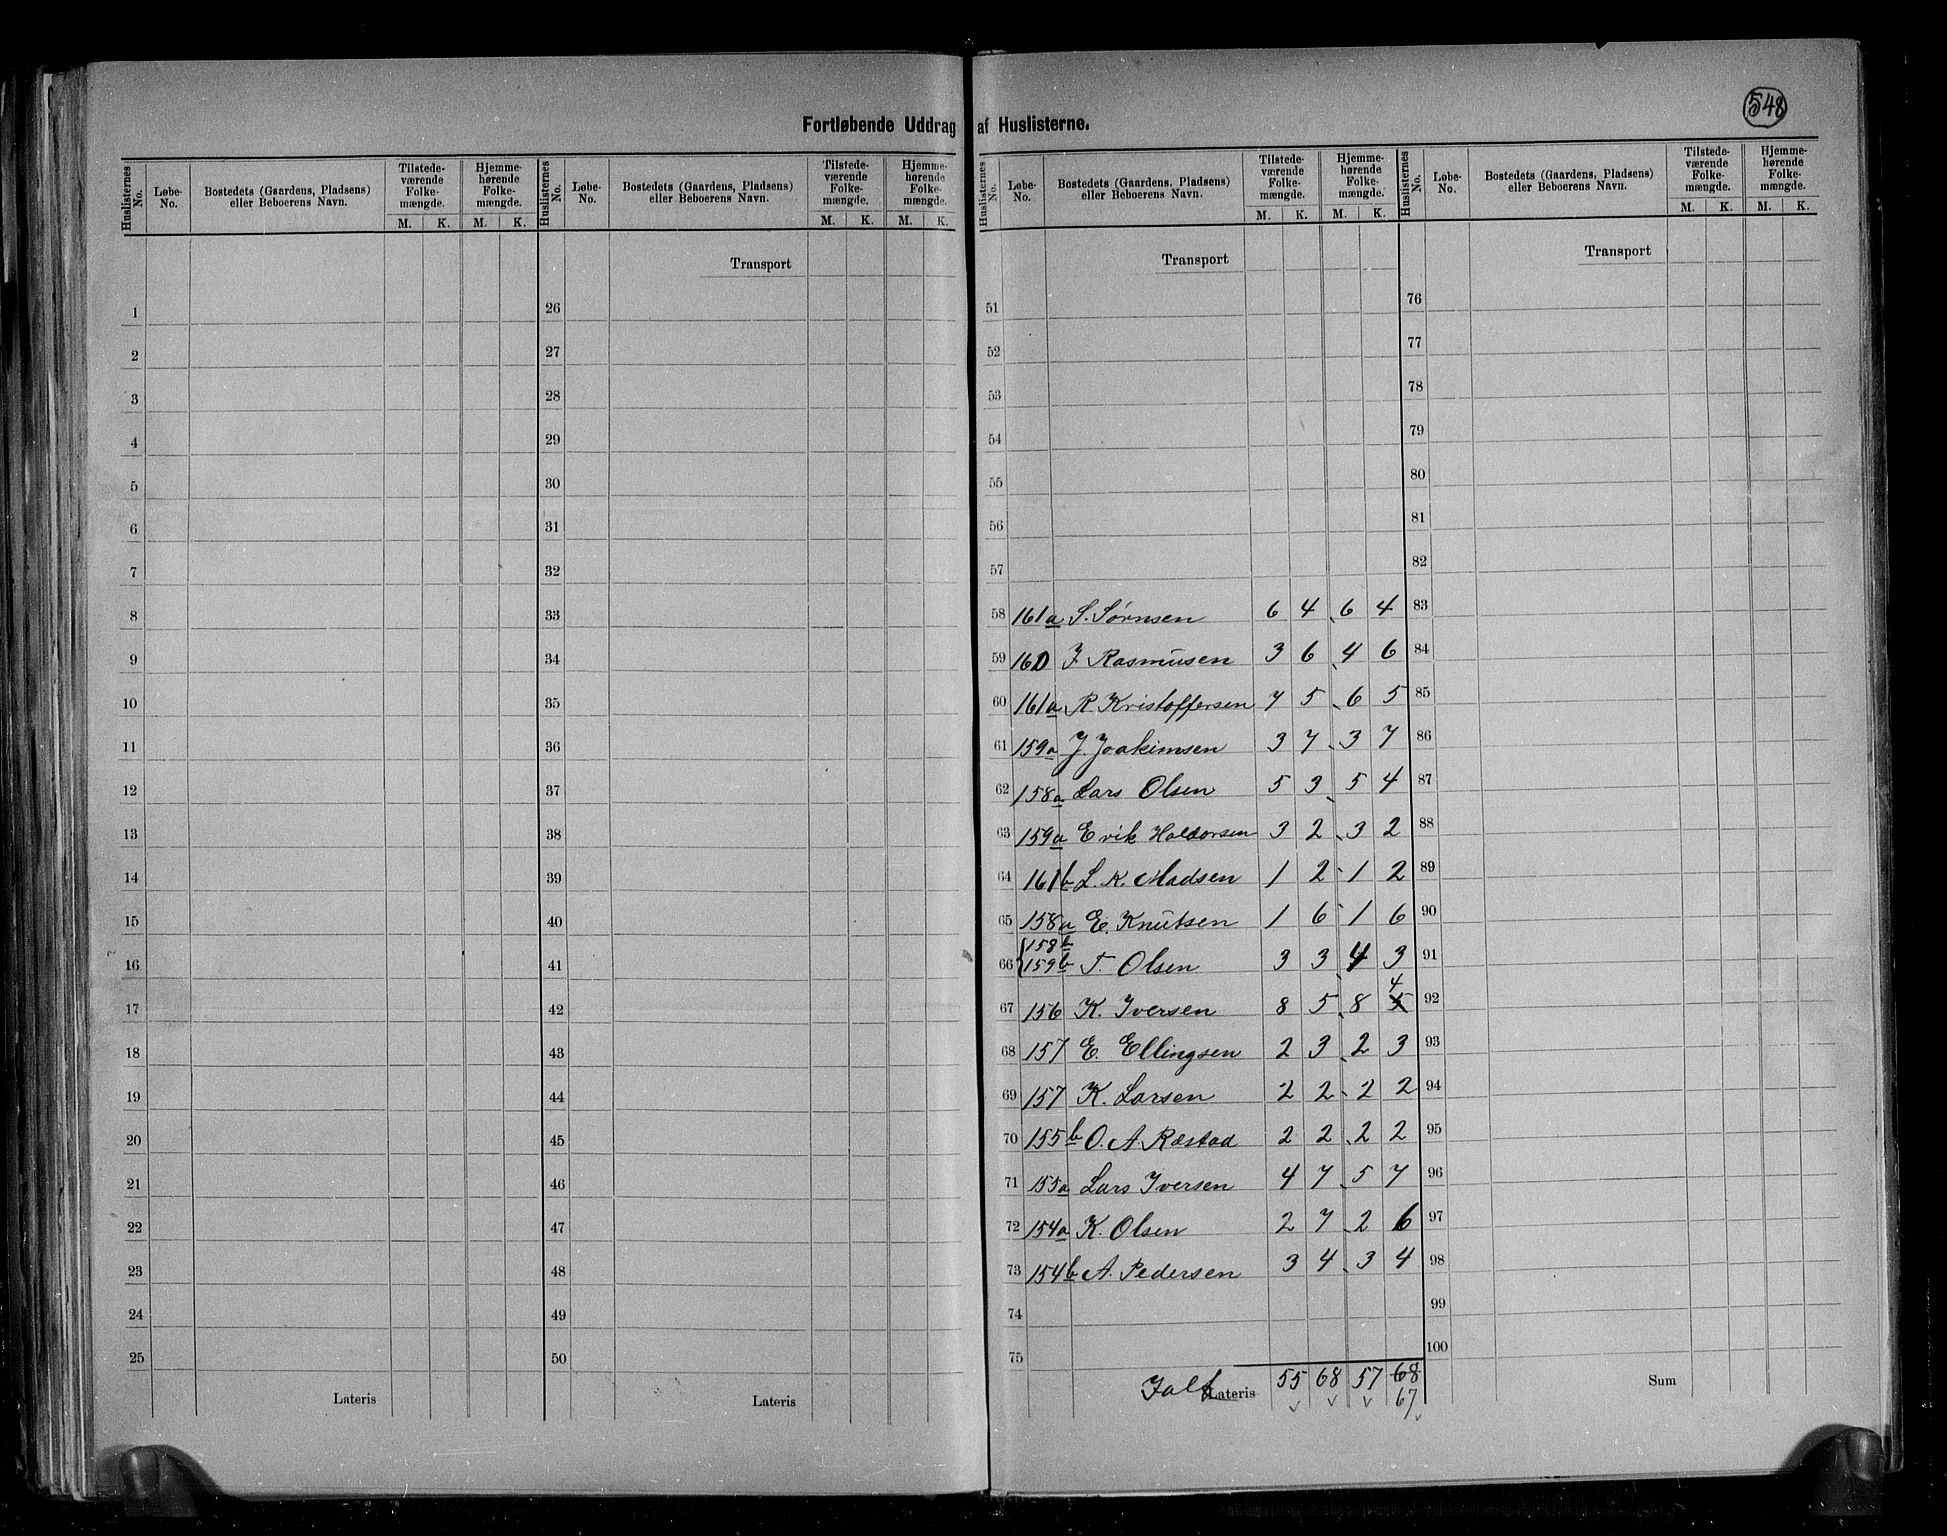 548
Fortløbende Uddrag af Huslisterne.
Huslisternes No. Løbe-No. Bostedets (Gaardens, Pladsens) eller Beboerens Navn. Tilstede-værende Folke-mængde. M. K. Hjemme-hørende Folke-mængde. M. K.
1
2
3
4
5
6
7
8
9
10
11
12
13
14
15
16
17
18
19
20
21
22
23
24
25
Lateris
Huslisternes No. Løbe-No. Bostedets (Gaardens, Pladsens) eller Beboerens Navn. Tilstede-værende Folke-mængde. M. K. Hjemme-hørende Folke-mængde. M. K.
Transport
26
27
28
29
30
31
32
33
34
35
36
37
38
39
40
41
42
43
44
45
46
47
48
49
50
Lateris
Huslisternes No. Løbe-No. Bostedets (Gaardens, Pladsens) eller Beboerens Navn. Tilstede-værende Folke-mængde. M. K. Hjemme-hørende Folke-mængde. M. K.
Transport
51
52
53
54
55
56
57
58 161a S. Sørnsen 6 4 6 4
59 160 J. Rasmusen 3 6 4 6
60 161a R Kristoffersen 7 5 6 5
61 159a J. Joakimsen 3 7 3 7
62 158a Lars Olsen 5 3 5 4
63 159a Erik Haldorsen 3 2 3 2
64 161b L. K. Madsen 1 2 1 2
65 158a E. Knutsen 1 6 1 6
158b
66 159b T. Olsen 3 3 4 3
67 156 K. Iversen 8 5 8 5 4
68 157 E. Ellingsen 2 3 2 3
69 157 K. Larsen 2 2 2 2
70 155b O. A. Ræstad 2 2 2 2
71 155a Lars Iversen 4 7 5 7
72 154a K. Olsen 2 7 2 6
73 154b A. Pedersen 3 4 3 4
74
75
Ialt Lateris 55 68 57 68
67
Huslisternes No. Løbe-No. Bostedets (Gaardens, Pladsens) eller Beboerens Navn. Tilstede-værende Folke-mængde. M. K. Hjemme-hørende Folke-mængde. M. K.
Transport
76
77
78
79
80
81
82
83
84
85
86
87
88
89
90
91
92
93
94
95
96
97
98
99
100
Sum